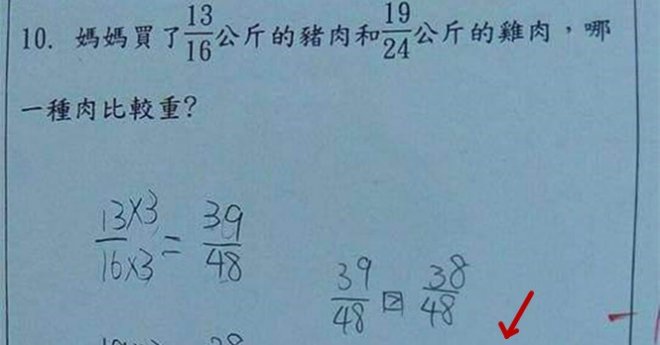 10. 媽媽買了13/16公斤的豬肉和19/24公斤的雞肉，哪
一種肉比較重?
13×3/16×3 = 39/48
39/48 > 38/48